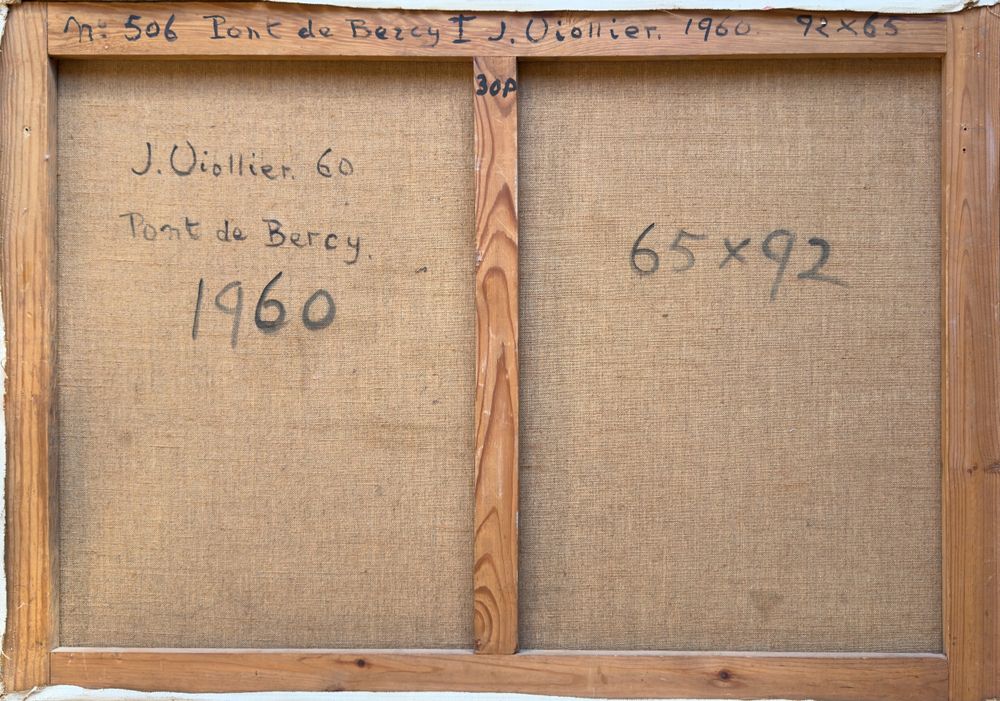 N: 506 Pont de Bercy I J. Viollier. 1960 92x65
30P
J. Viollier. 60
Pont de Bercy.
1960
65x92